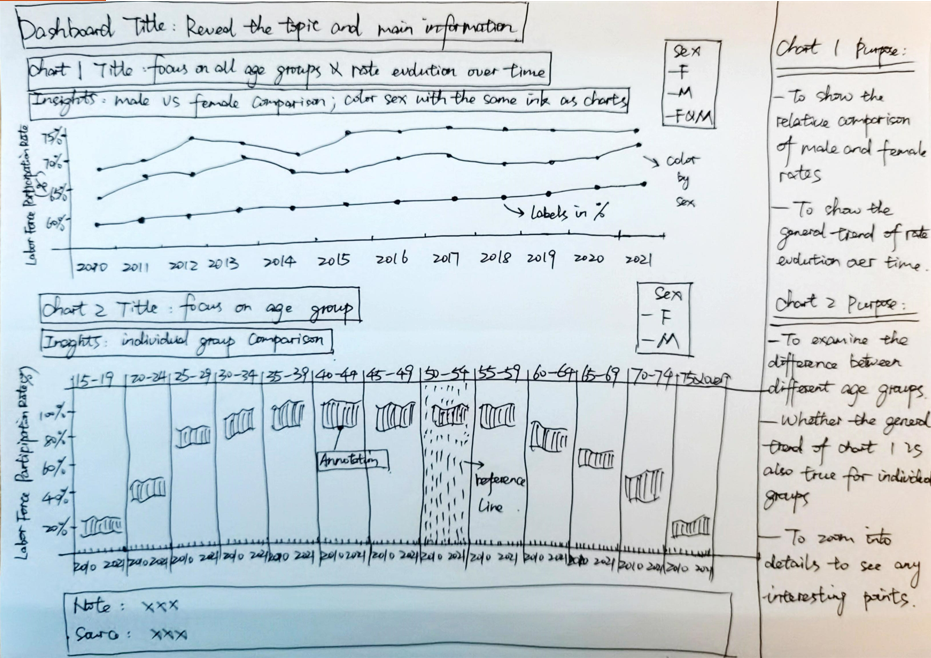 Dashboard Title: Reveal the topic and main information
Chart 1 Title: focus on all age groups & rate evolution over time
Insights: male vs female comparison; color sex with the same ink as charts
Sex
-F
-M
-F&M
Labor Force Participation Rate (%)
75%
70%
65%
60%
color by sex
Labels in %
2010 2011 2012 2013 2014 2015 2016 2017 2018 2019 2020 2021
Chart 2 Title: focus on age group
Insights: individual group Comparison
Sex
- F
- M
Labor Force Participation Rate(%)
15-19 20-24 25-29 30-34 35-39 40-44 45-49 50-54 55-59 60-64 65-69 70-74 75&over
100%
80%
60%
40%
20%
Annotation
reference
Line
2010 2021 2010 2021 2010 2021 2010 2021 2010 2021 2010 2021 2010 2021 2010 2021 2010 2021 2010 2021 2010 2021 2010 2021 2010 2021
Note: xxx
Source: xxx
Chart 1 Purpose:
- To show the
relative comparison
of male and female
rates
- To show the
general trend of rate
evolution over time.
Chart 2 Purpose:
- To examine the
difference between
different age groups.
- Whether the general
trend of chart 1 is
also true for individual
groups
- To zoom into
details to see any
interesting points.